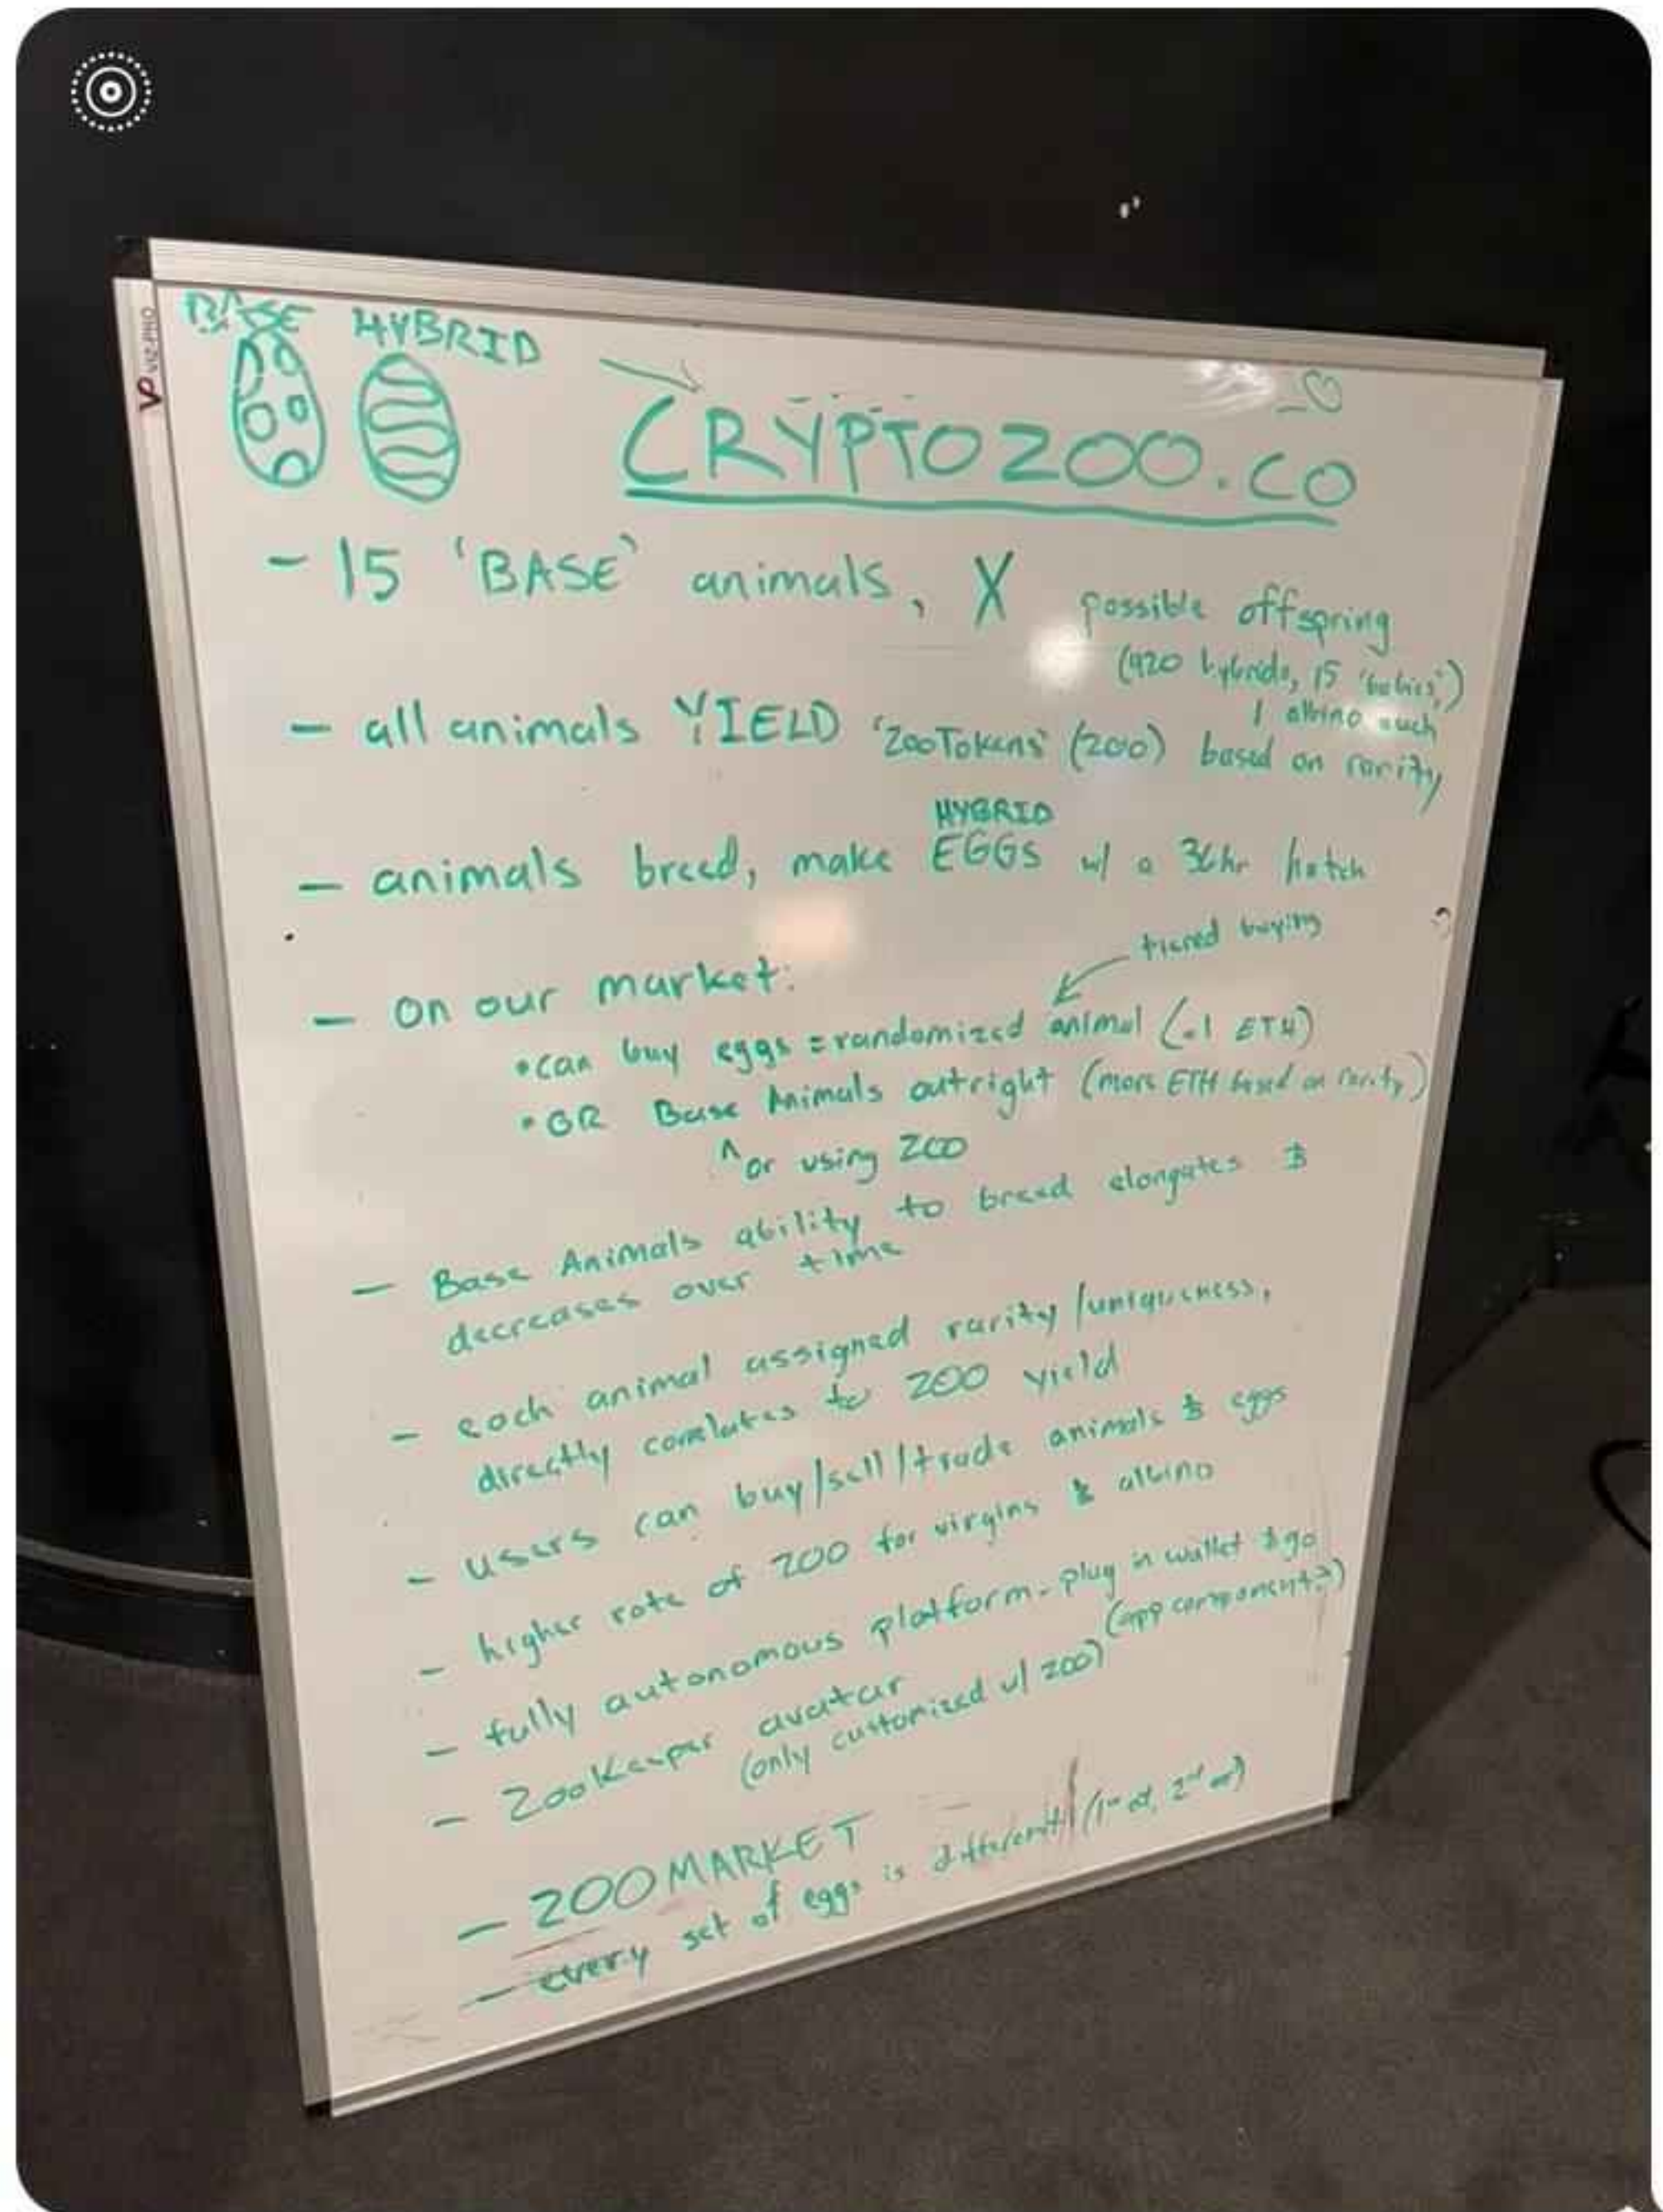 BASE HYBRID
VIZ-PRO
CRYPTOZOO.CO
- 15 'BASE' animals, X possible offspring
(420 hybrids, 15 'babies',)
1 albino each
- all animals YIELD 'ZooTokens' (ZOO) based on rarity
HYBRID
- animals breed, make EGGS w/ a 36hr hatch
tiered buying
- on our market:
• can buy eggs = randomized animal (.1 ETH)
• OR Base Animals outright (more ETH based on rarity)
^ or using ZOO
- Base Animals ability to breed elongates &
decreases over time
- each animal assigned rarity/uniqueness,
directly correlates to ZOO yield
- users can buy/sell/trade animals & eggs
- higher rate of ZOO for virgins & albino
- fully autonomous platform - plug in wallet & go
(app component?)
- ZooKeeper avatar
(only customized w/ ZOO)
- ZOO MARKET
- every set of eggs is different (1st, 2nd)